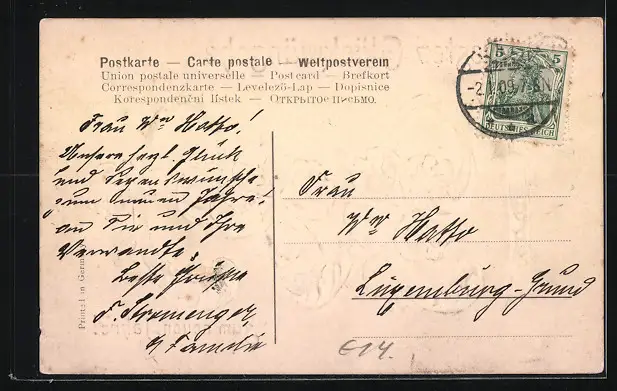 Postkarte — Carte postale — Weltpostverein
Union postale universelle — Postcard — Brefkort
Correspondenzkarte — Levelező-Lap — Dopisnice
Korespondenční lístek — ОТКРЫТОЕ ПИСЬМО.
5 5
DEUTSCHES REICH
-2.1.09.7-8N
Frau Ww Hatto!
Unsere herzl. Glück
und Segenswünsche
zum Neuen Jahre!
an Sie und Ihre
Verwandte.
Beste Grüsse
F. Stremenger
& Familie
Frau
Ww Hatto
Luxemburg-Grund
E14.
Printed in Germany